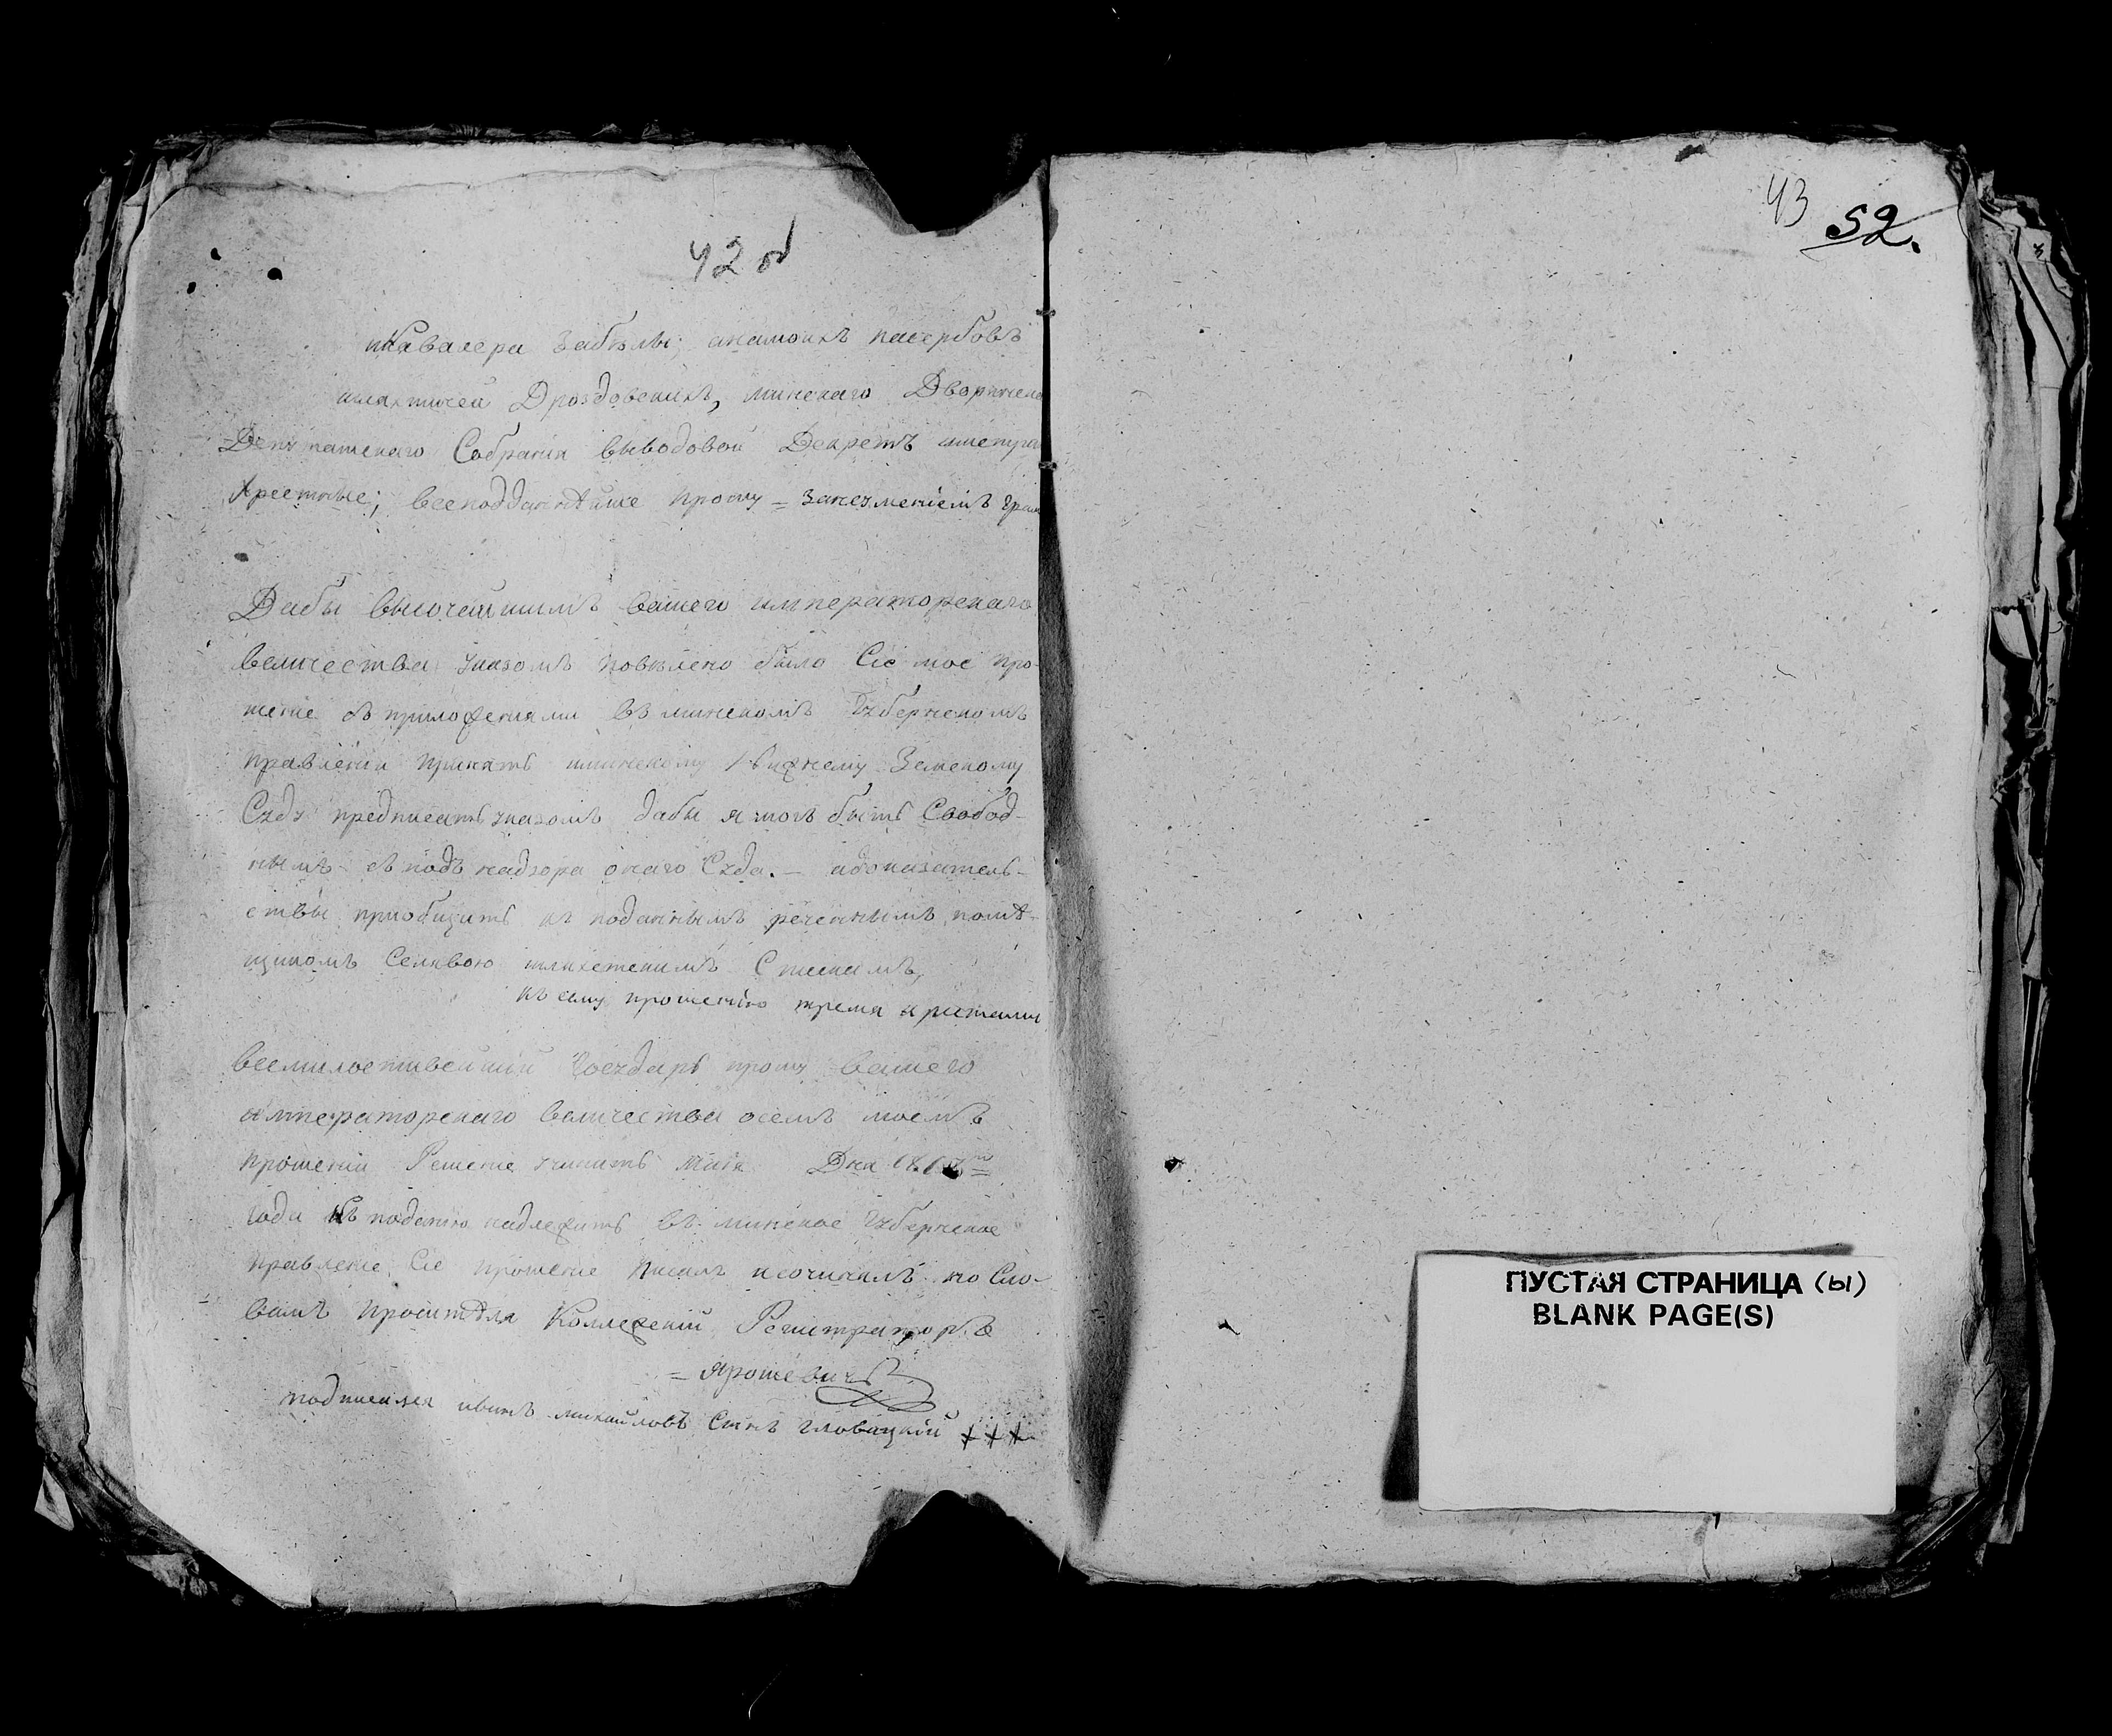 42 об
икавалера Забѣлы; анамоихъ пасербовъ
шляхтичей Дроздовскихъ, минскаго Дворянска
Депутатскаго Собранія выводовой Декретъ
Хрестные; всеподданнѣйше прошу =
Дабы высочайшимъ вашего императорскаго
величества указомъ повѣлено было Сіе мое про-
шение съ приложениями въ минскомъ Губернскомъ
правленіи принять иминскому Нижнему Земскому
Суду предписать указомъ дабы я могъ быть Свобод-
нымъ съ подъ надзора онаго Суда. — адоказатель-
ствы приобщить къ поданнымъ реченнымъ помѣ-
щикомъ Селявою шляхетскимъ Спискамъ,
къ сему прошенію тремя крестами
всемилостивейший Государь прошу вашего
императорскаго величества осемъ моемъ
прошении Решение учинить Маія Дня
года Къ поданию надлежитъ въ минское Губернское
правление. Сие прошение писалъ исочинялъ по Сло-
вамъ просителя Коллежский Регистраторъ
= Ярошевичъ
подписался иванъ михайловъ Сынъ Гловацкий +++
43 52.
ПУСТАЯ СТРАНИЦА (ы)
BLANK PAGE(S)